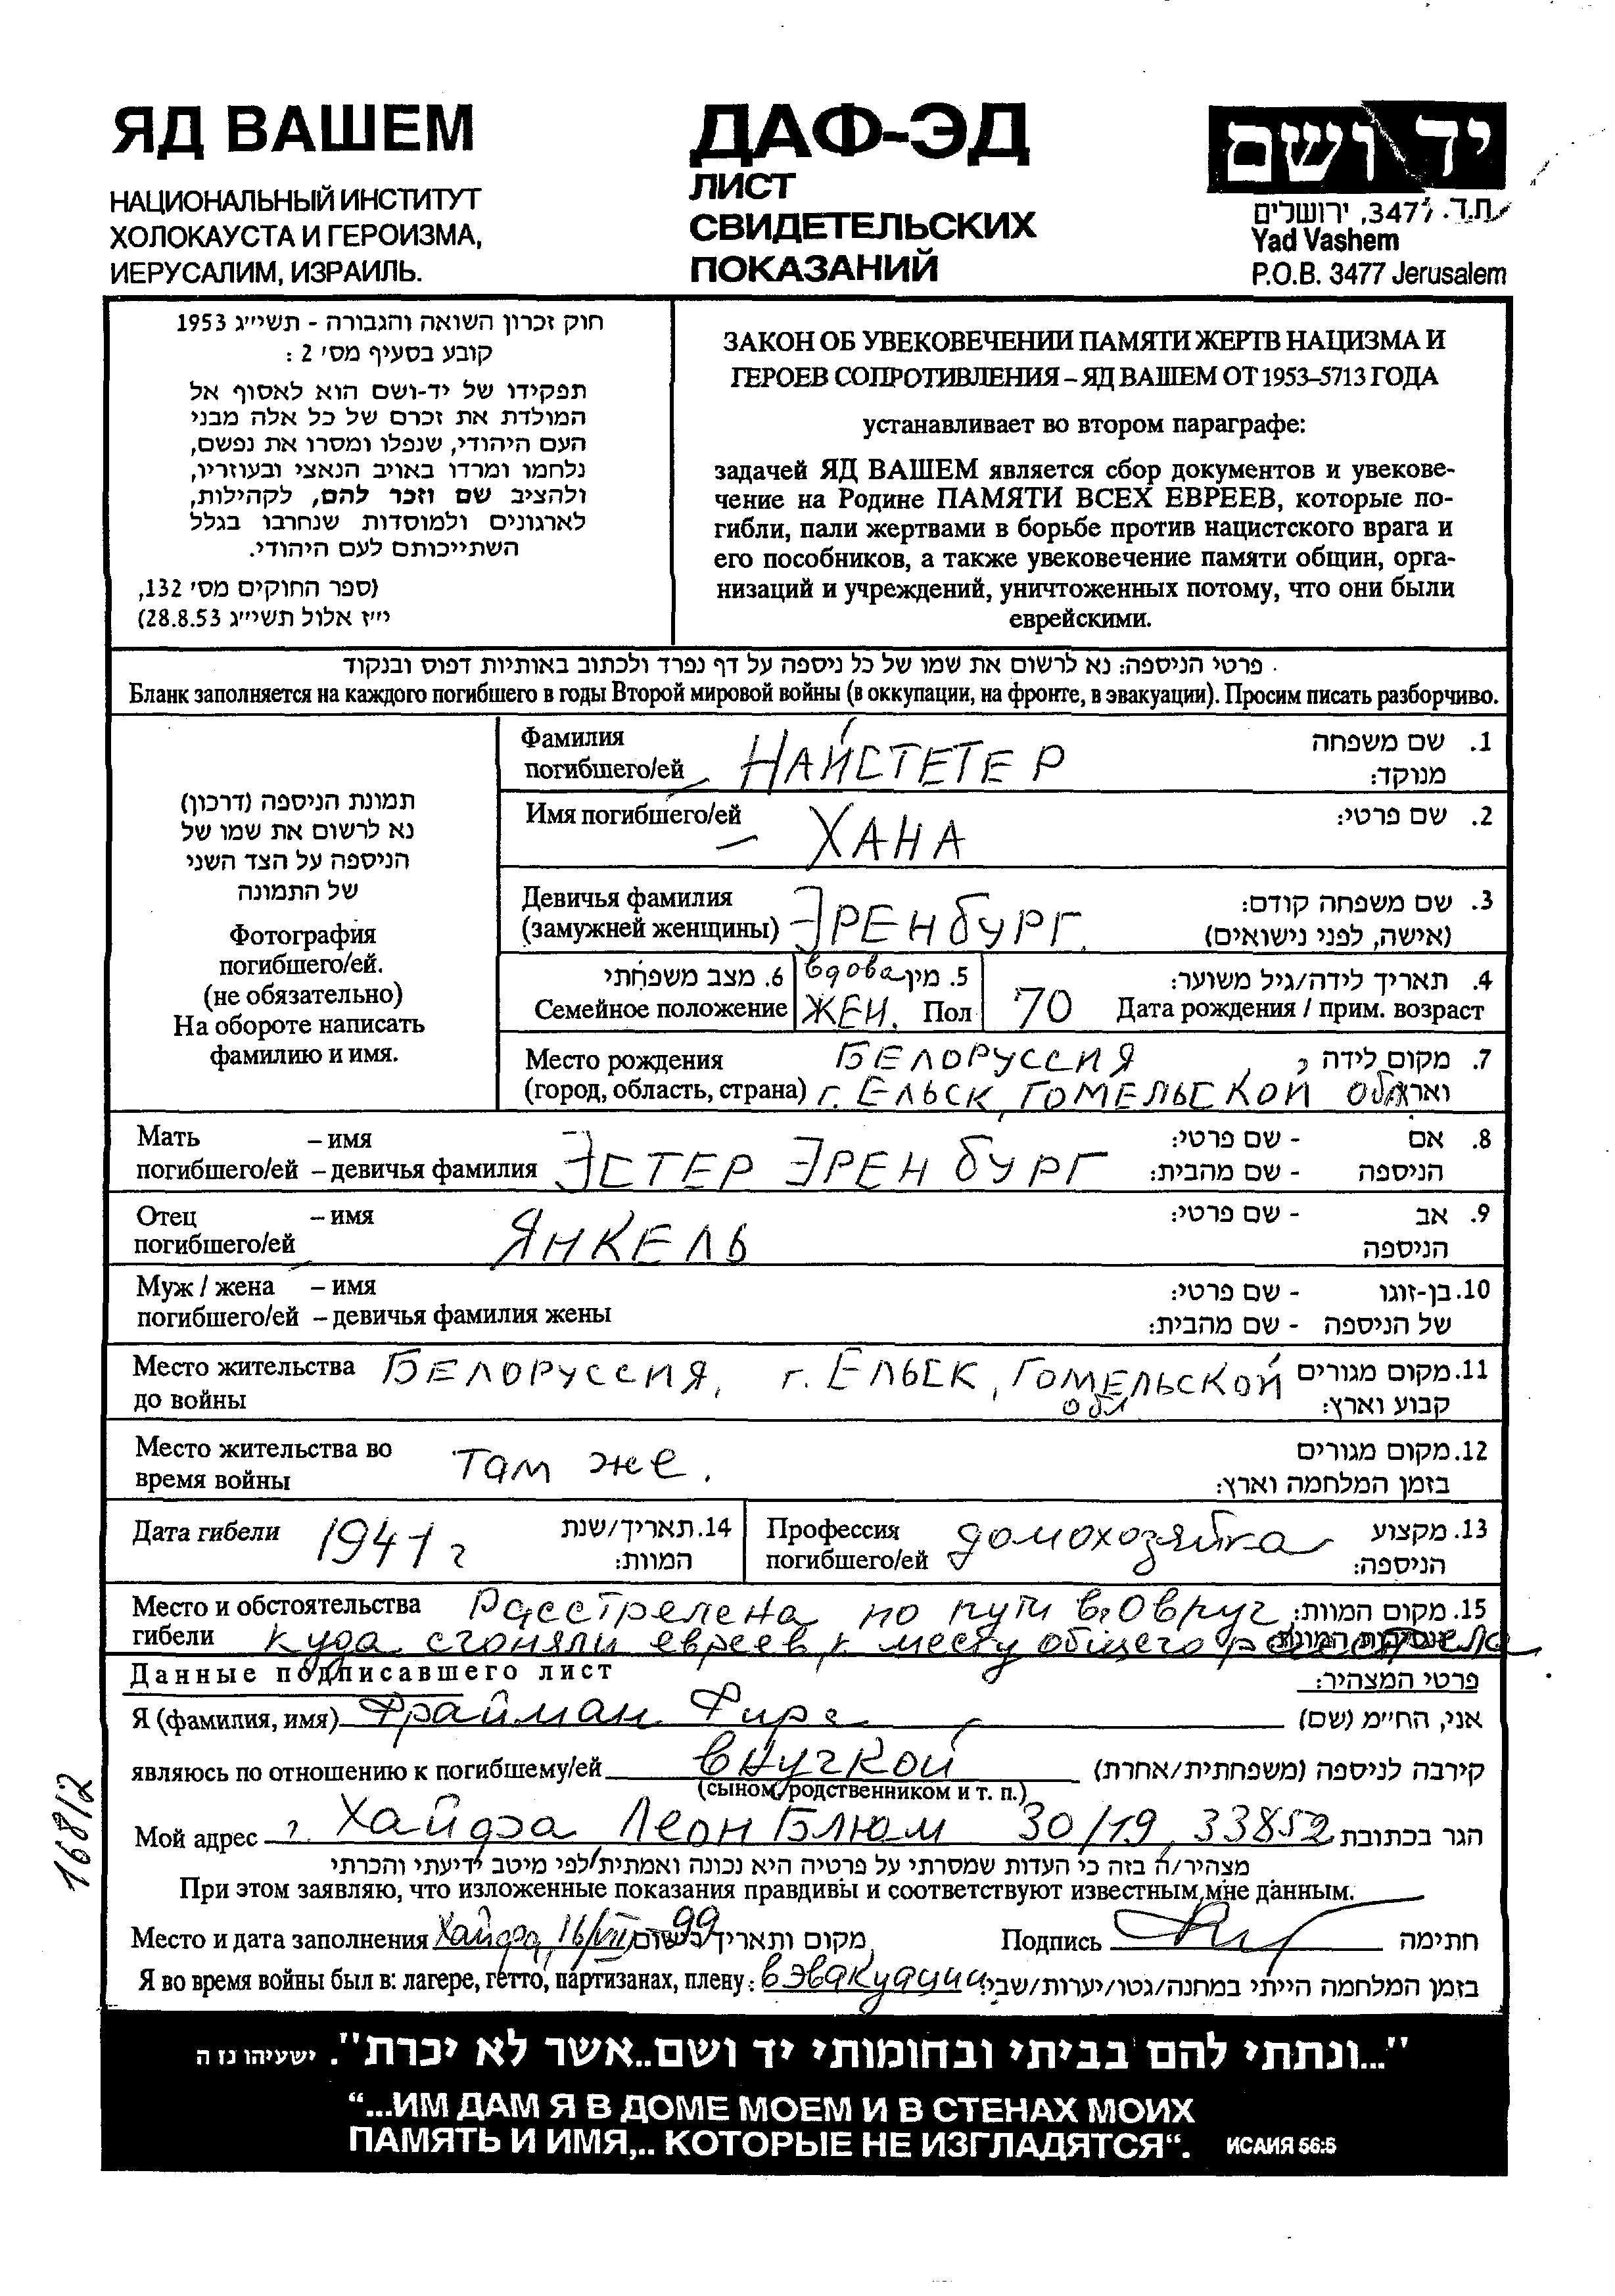 ЯД ВАШЕМ
НАЦИОНАЛЬНЫЙ ИНСТИТУТ
ХОЛОКАУСТА И ГЕРОИЗМА,
ИЕРУСАЛИМ, ИЗРАИЛЬ.
ДАФ-ЭД
ЛИСТ
СВИДЕТЕЛЬСКИХ
ПОКАЗАНИЙ
יד ושם
ת.ד. 3477, ירושלים
Yad Vashem
P.O.B. 3477 Jerusalem
חוק זכרון השואה והגבורה - תשי״ג 1953
קובע בסעיף מס׳ 2 :
תפקידו של יד-ושם הוא לאסוף אל
המולדת את זכרם של כל אלה מבני
העם היהודי, שנפלו ומסרו את נפשם,
נלחמו ומרדו באויב הנאצי ובעוזריו,
ולהציב שם וזכר להם, לקהילות,
לארגונים ולמוסדות שנחרבו בגלל
השתייכותם לעם היהודי.
(ספר החוקים מס׳ 132,
י״ז אלול תשי״ג 28.8.53)
ЗАКОН ОБ УВЕКОВЕЧЕНИИ ПАМЯТИ ЖЕРТВ НАЦИЗМА И
ГЕРОЕВ СОПРОТИВЛЕНИЯ – ЯД ВАШЕМ ОТ 1953–5713 ГОДА
устанавливает во втором параграфе:
задачей ЯД ВАШЕМ является сбор документов и увекове-
чение на Родине ПАМЯТИ ВСЕХ ЕВРЕЕВ, которые по-
гибли, пали жертвами в борьбе против нацистского врага и
его пособников, а также увековечение памяти общин, орга-
низаций и учреждений, уничтоженных потому, что они были
еврейскими.
פרטי הניספה: נא לרשום את שמו של כל ניספה על דף נפרד ולכתוב באותיות דפוס ובנקוד
Бланк заполняется на каждого погибшего в годы Второй мировой войны (в оккупации, на фронте, в эвакуации). Просим писать разборчиво.
תמונת הניספה (דרכון)
נא לרשום את שמו של
הניספה על הצד השני
של התמונה
Фотография
погибшего/ей.
(не обязательно)
На обороте написать
фамилию и имя.
Фамилия
погибшего/ей НАЙСТЕТЕР
1. שם משפחה
מנוקד:
Имя погибшего/ей ХАНА
2. שם פרטי:
Девичья фамилия
(замужней женщины) ЭРЕНБУРГ.
3. שם משפחה קודם:
(אישה, לפני נישואים)
6. מצב משפחתי
Семейное положение
вдова
ЖЕН.
5. מין
Пол
70
4. תאריך לידה/גיל משוער:
Дата рождения / прим. возраст
Место рождения БЕЛОРУССИЯ,
(город, область, страна) г. ЕЛЬСК, ГОМЕЛЬСКОЙ обл
7. מקום לידה
וארץ
Мать – имя
погибшего/ей – девичья фамилия ЭСТЕР ЭРЕНБУРГ
8. אם - שם פרטי:
הניספה - שם מהבית:
Отец – имя
погибшего/ей ЯНКЕЛЬ
9. אב - שם פרטי:
הניספה
Муж / жена – имя
погибшего/ей – девичья фамилия жены
10. בן-זוגו - שם פרטי:
של הניספה - שם מהבית:
Место жительства БЕЛОРУССИЯ, г. ЕЛЬСК, ГОМЕЛЬСКОЙ
до войны обл
11. מקום מגורים
קבוע וארץ:
Место жительства во
время войны Там же.
12. מקום מגורים
בזמן המלחמה וארץ:
Дата гибели 1941 г
14. תאריך/שנת
המוות:
Профессия
погибшего/ей домохозяйка
13. מקצוע
הניספה:
Место и обстоятельства Расстрелена по пути в г. Овруч
гибели куда сгоняли евреев, к месту общего расстрела
15. מקום המוות:
Данные подписавшего лист
פרטי המצהיר:
Я (фамилия, имя) Фрайман Фира
אני, הח״מ (שם)
являюсь по отношению к погибшему/ей внучкой
קירבה לניספה (משפחתית/אחרת)
(сыном, родственником и т. п.)
Мой адрес г. Хайфа Леон Блюм 30/19, 33852
הגר בכתובת
מצהיר/ה בזה כי העדות שמסרתי על פרטיה היא נכונה ואמתית/לפי מיטב ידיעתי והכרתי
При этом заявляю, что изложенные показания правдивы и соответствуют известным мне данным.
Место и дата заполнения Хайфа, 16/VII-99
מקום ותאריך רישום
Подпись
חתימה
Я во время войны был в: лагере, гетто, партизанах, плену: в эвакуации
בזמן המלחמה הייתי במחנה/גטו/יערות/שבי:
16812
"...ונתתי להם בביתי ובחומותי יד ושם..אשר לא יכרת". ישעיהו נז ה
“...ИМ ДАМ Я В ДОМЕ МОЕМ И В СТЕНАХ МОИХ
ПАМЯТЬ И ИМЯ,.. КОТОРЫЕ НЕ ИЗГЛАДЯТСЯ“. ИСАИЯ 56:5